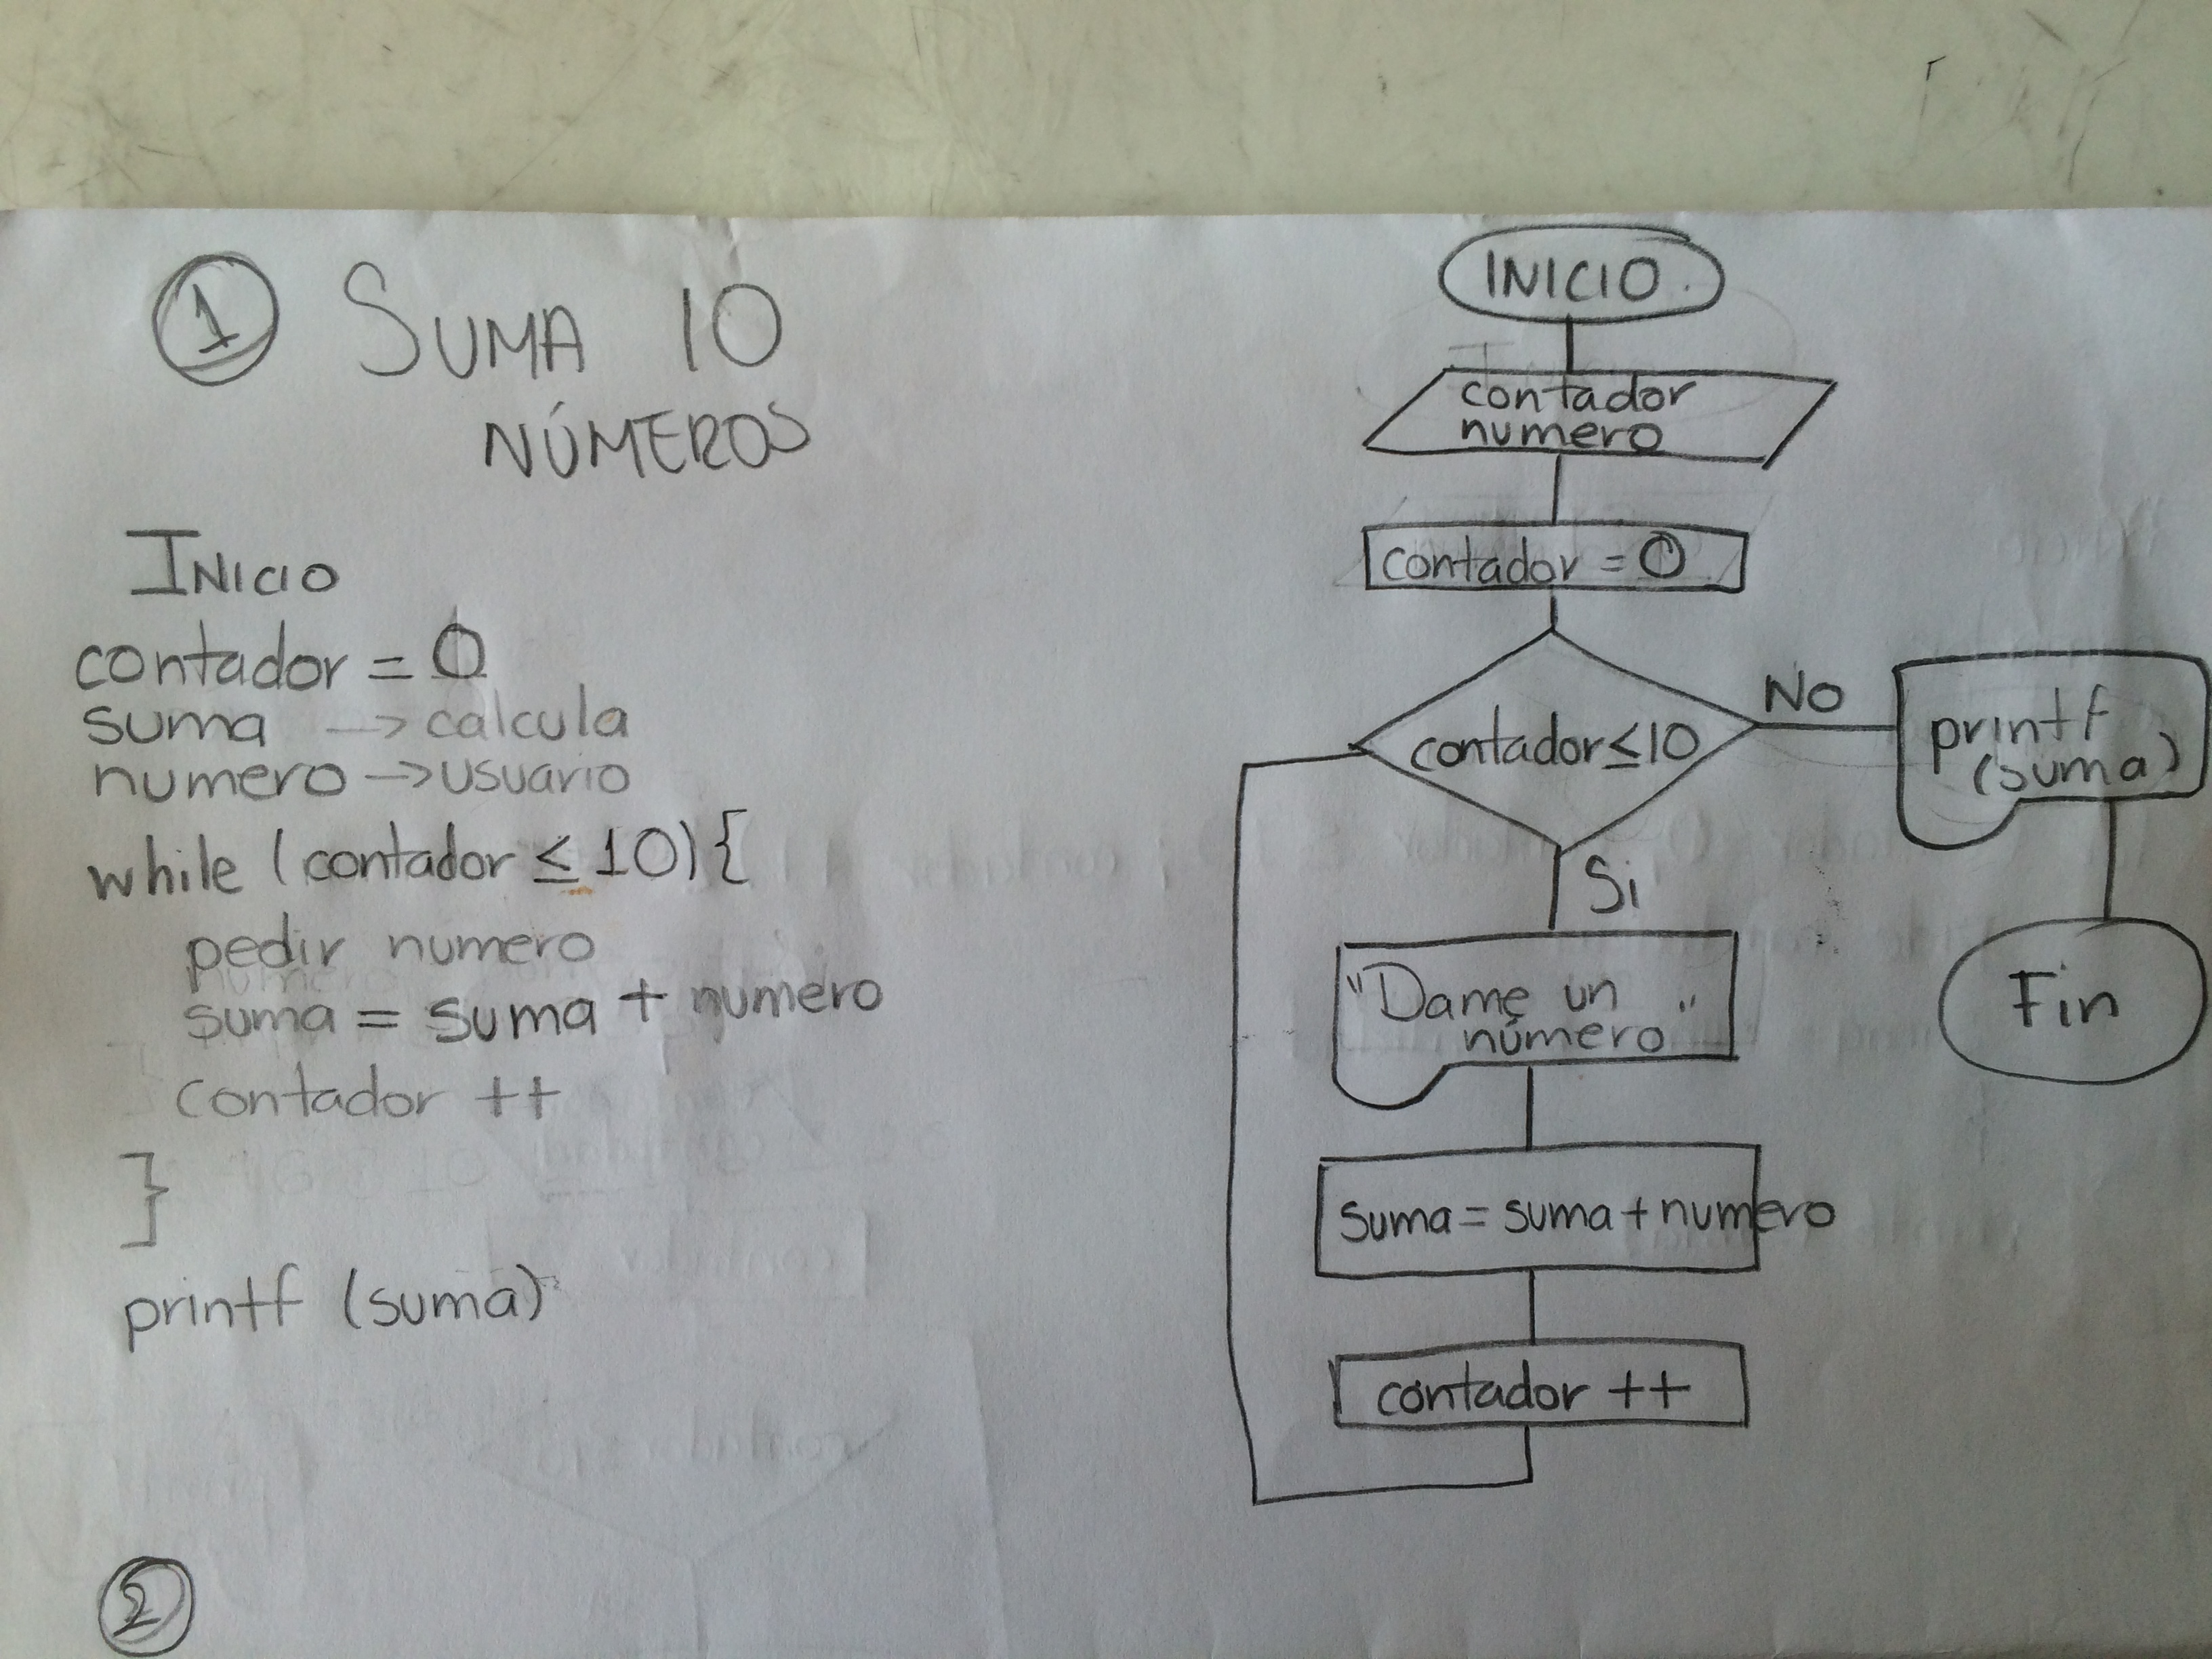 1 SUMA 10
NÚMEROS
INICIO
contador = 0
suma → calcula
numero → usuario
while (contador ≤ 10) {
pedir numero
suma = suma + numero
contador ++
}
printf (suma)
2
INICIO
contador
numero
contador = 0
contador ≤ 10
No
printf
(suma)
Fin
Si
"Dame un
número"
suma = suma + numero
contador ++